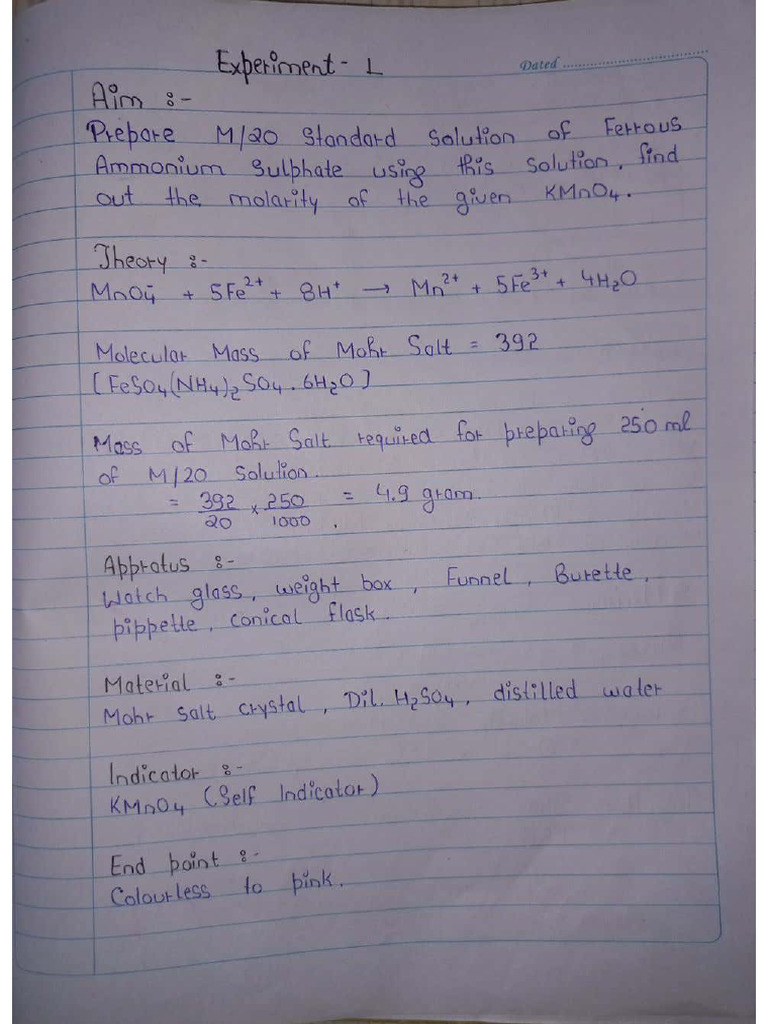 Experiment - 1
Dated
Aim :-
Prepare M/20 Standard Solution of Ferrous
Ammonium Sulphate using this solution, find
out the molarity of the given KMnO₄.
Theory :-
MnO₄⁻ + 5Fe²⁺ + 8H⁺ → Mn²⁺ + 5Fe³⁺ + 4H₂O
Molecular Mass of Mohr Salt = 392
[FeSO₄(NH₄)₂SO₄.6H₂O]
Mass of Mohr Salt required for preparing 250 ml
of M/20 Solution.
= 392/20 × 250/1000 = 4.9 gram.
Appratus :-
Watch glass, weight box, Funnel, Burette,
pippette, conical flask.
Material :-
Mohr salt crystal, Dil. H₂SO₄, distilled water
Indicator :-
KMnO₄ (Self Indicator)
End point :-
Colourless to pink.